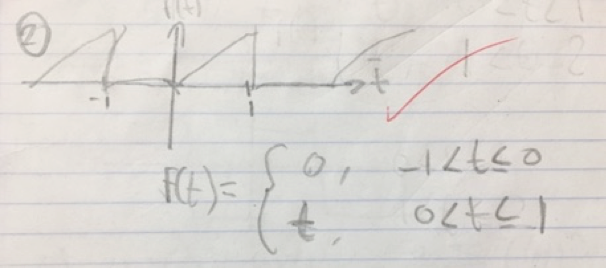 ② f(t)
-1 1 t
f(t) = { 0, -1<t≤0
t, 0<t≤1